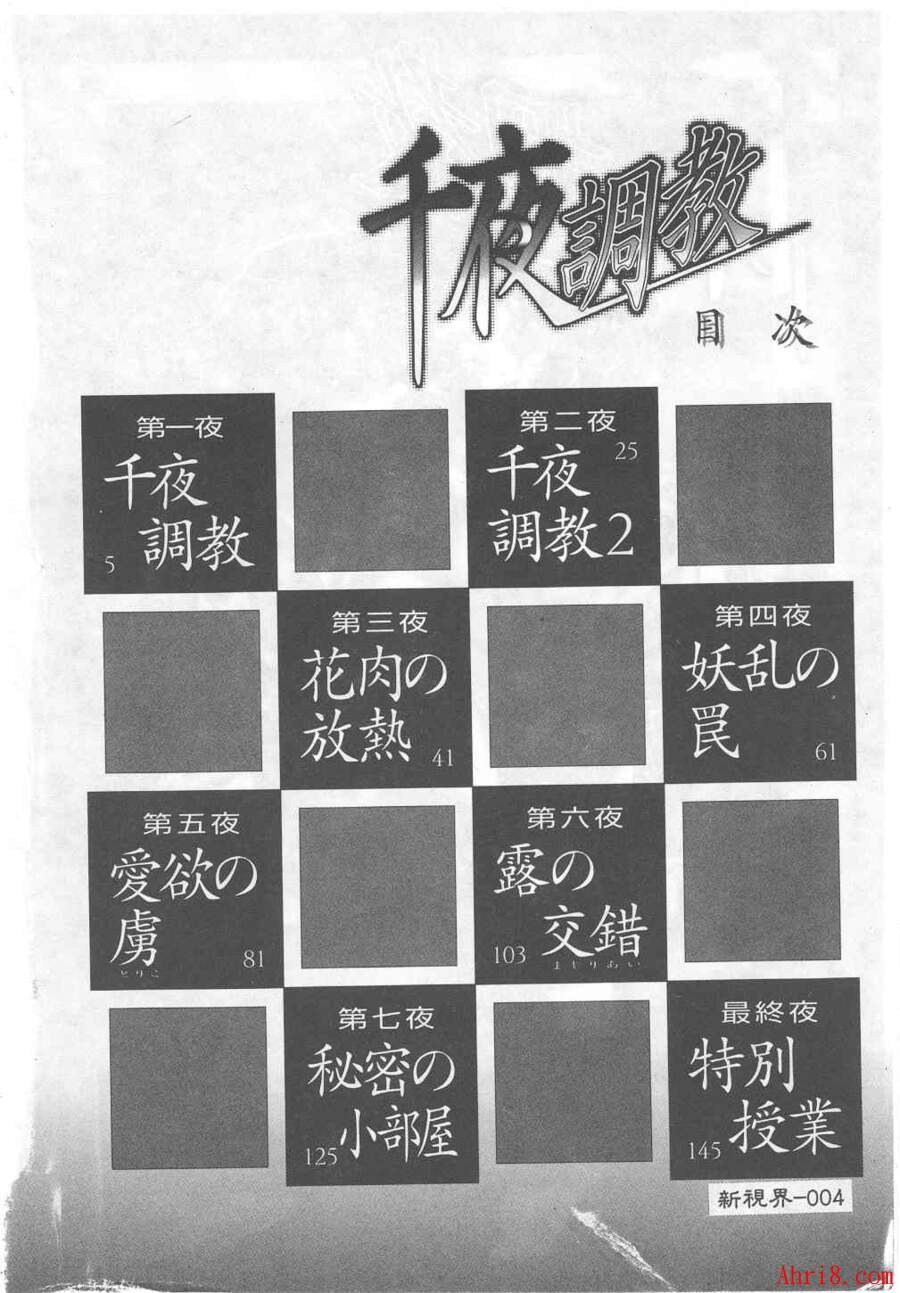 千夜調教
目次
第一夜
千夜
調教
5
第二夜
25
千夜
調教2
第三夜
花肉の
放熱
41
第四夜
妖乱の
罠
61
第五夜
愛欲の
虜
とりこ
81
第六夜
露の
交錯
まじりあい
103
第七夜
秘密の
小部屋
125
最終夜
特別
授業
145
新視界-004
Ahri8.com